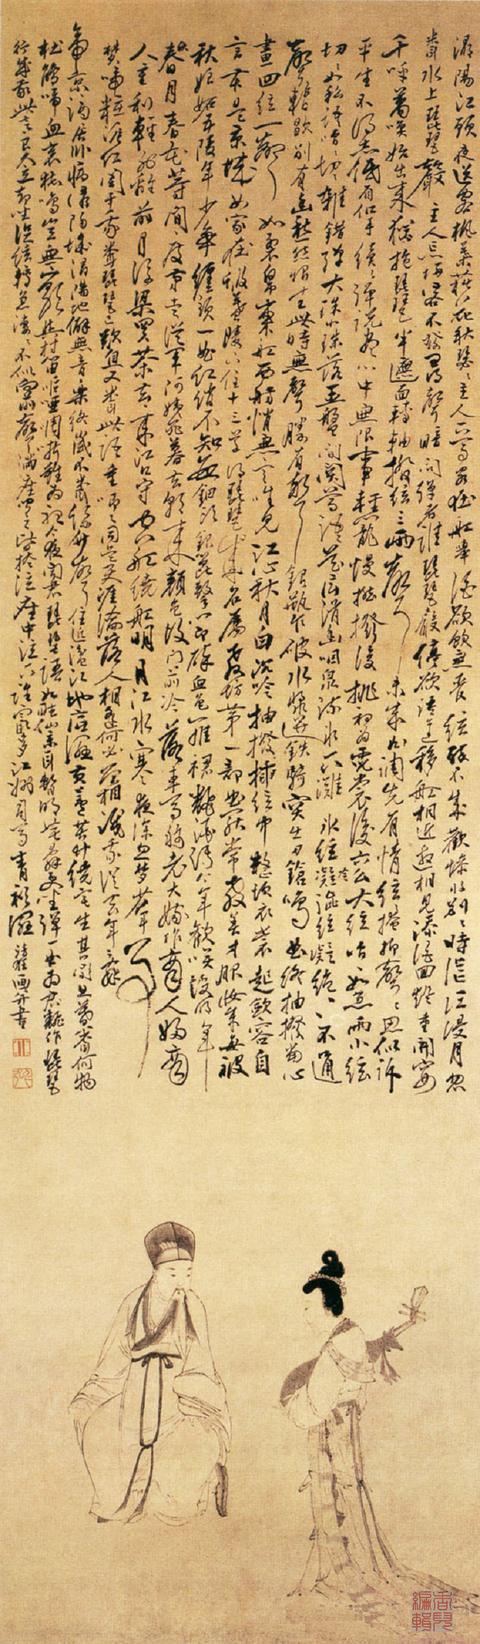 潯陽江頭夜送客楓葉荻花秋瑟瑟主人下馬客在船舉酒欲飲無管絃醉不成歡慘將別別時茫茫江浸月忽
聞水上琵琶聲主人忘歸客不發尋聲暗問彈者誰琵琶聲停欲語遲移船相近邀相見添酒回燈重開宴
千呼萬喚始出來猶抱琵琶半遮面轉軸撥絃三兩聲未成曲調先有情絃絃掩抑聲聲思似訴
平生不得志低眉信手續續彈說盡心中無限事輕攏慢撚撥復挑初為霓裳後六幺大絃嘈嘈如急雨小絃
切切如私語嘈嘈切切雜錯彈大珠小珠落玉盤間關鶯語花底滑幽咽泉流水下灘水絃凝絕凝絕不通
聲暫歇別有幽愁暗恨生此時無聲勝有聲銀瓶乍破水漿迸鐵騎突出刀鎗鳴曲終抽撥當心
畫四絃一聲如裂帛東船西舫悄無言唯見江心秋月白沉吟抽撥插絃中整頓衣裳起斂容自
言本是京城女家在蝦蟇陵下住十三學得琵琶成名屬教坊第一部曲罷常教善才服妝成每被
秋娘妬五陵年少爭纏頭一曲紅綃不知數鈿頭銀篦擊節碎血色羅裙翻酒污今年歡笑復明年
秋月春風等閒度弟走從軍阿姨死暮去朝來顏色故門前冷落車馬稀老大嫁作商人婦商
人重利輕別離前月浮梁買茶去去來江口守空船繞船明月江水寒夜深忽夢少年事
夢啼粧淚紅闌干我聞琵琶已歎息又聞此語重唧唧同是天涯淪落人相逢何必曾相識我從去年辭
帝京謫居臥病潯陽城潯陽地僻無音樂終歲不聞絲竹聲住近湓江地低濕黃蘆苦竹繞宅生其間旦暮聞何物
杜鵑啼血哀猿鳴豈無山歌與村笛嘔啞嘲哳難為聽今夜聞君琵琶語如聽仙樂耳暫明莫辭更坐彈一曲為君翻作琵琶
行感我此言良久立却坐促絃絃轉急淒淒不似向前聲滿座聞之皆掩泣座中泣下誰最多江州司馬青衫濕
畫并書
編輯